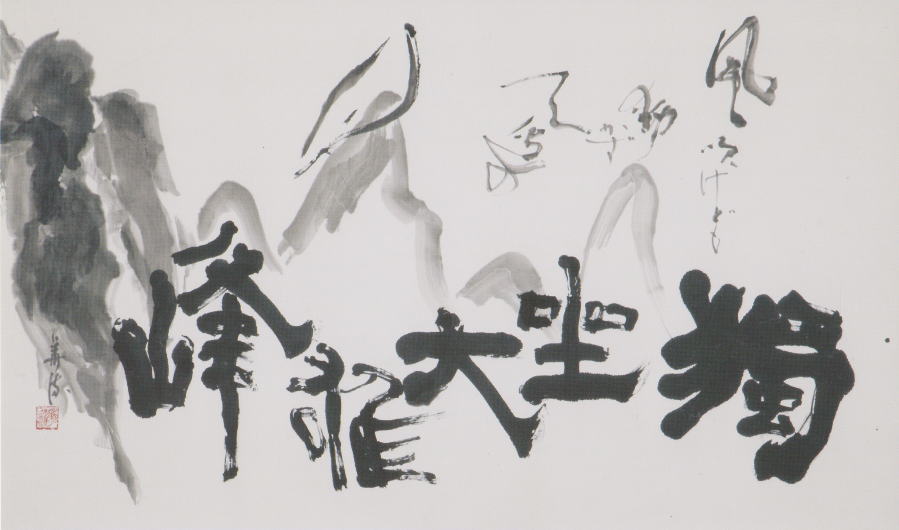 風吹けども
動ぜず
天辺の
月
獨坐大雄峰